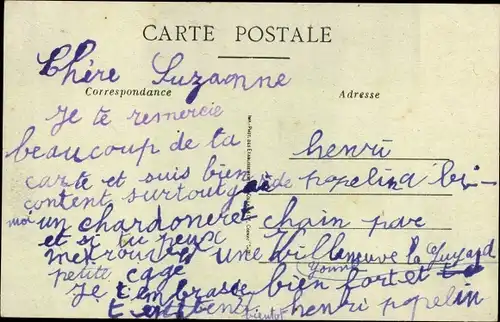 CARTE POSTALE
Chère Suzanne
Correspondance
Adresse
je te remercie
beaucoup de ta
carte et suis bien
content surtout garde
moi un chardoneret
et si tu peux
me trouve une
petite cage
je t'embrasse bien fort et
bientôt henri popelin
henri
popelin
chain par
Villeneuve la Guyard
Yonne